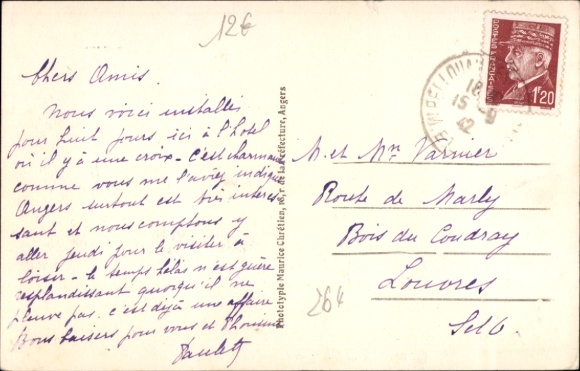 12€
Chers Amis.
Nous voici installés
pour huit jours ici à l'hotel
où il y à une croix - c'est charmant
comme vous me l'aviez indiqué
Angers surtout est très interes
sant et nous comptons y
aller jeudi pour le visiter à
loisir - le temps hélas n'est guère
resplandissant quoiqu'il ne
pleuve pas. c'est déjà une affaire
Bons baisers pour vous et
Paulette
Phototypie Maurice Chrétien, r de la Préfecture, Angers
18
15 - 9
42
1f20
M. et Mme Varnier
Route de Marly
Bois du Coudray
Louvres
S et O
26€